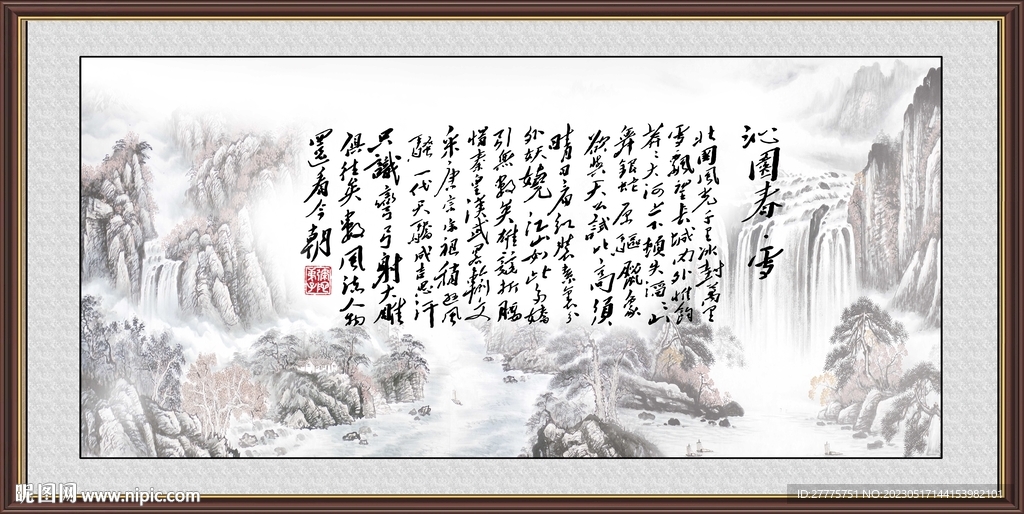 沁園春·雪
北國風光千里冰封萬里
雪飄望長城内外惟餘
莽々大河上下頓失滔々山
舞銀蛇原驅臘象
欲與天公試比高須
晴日看紅裝素裹分
外妖嬈江山如此多嬌
引無數英雄競折腰
惜秦皇漢武略輸文
采唐宗宋祖稍遜風
騷一代天驕成吉思汗
只識彎弓射大雕
俱往矣數風流人物
還看今朝
昵图网 www.nipic.com
ID:27775751 NO:20230517144153982101